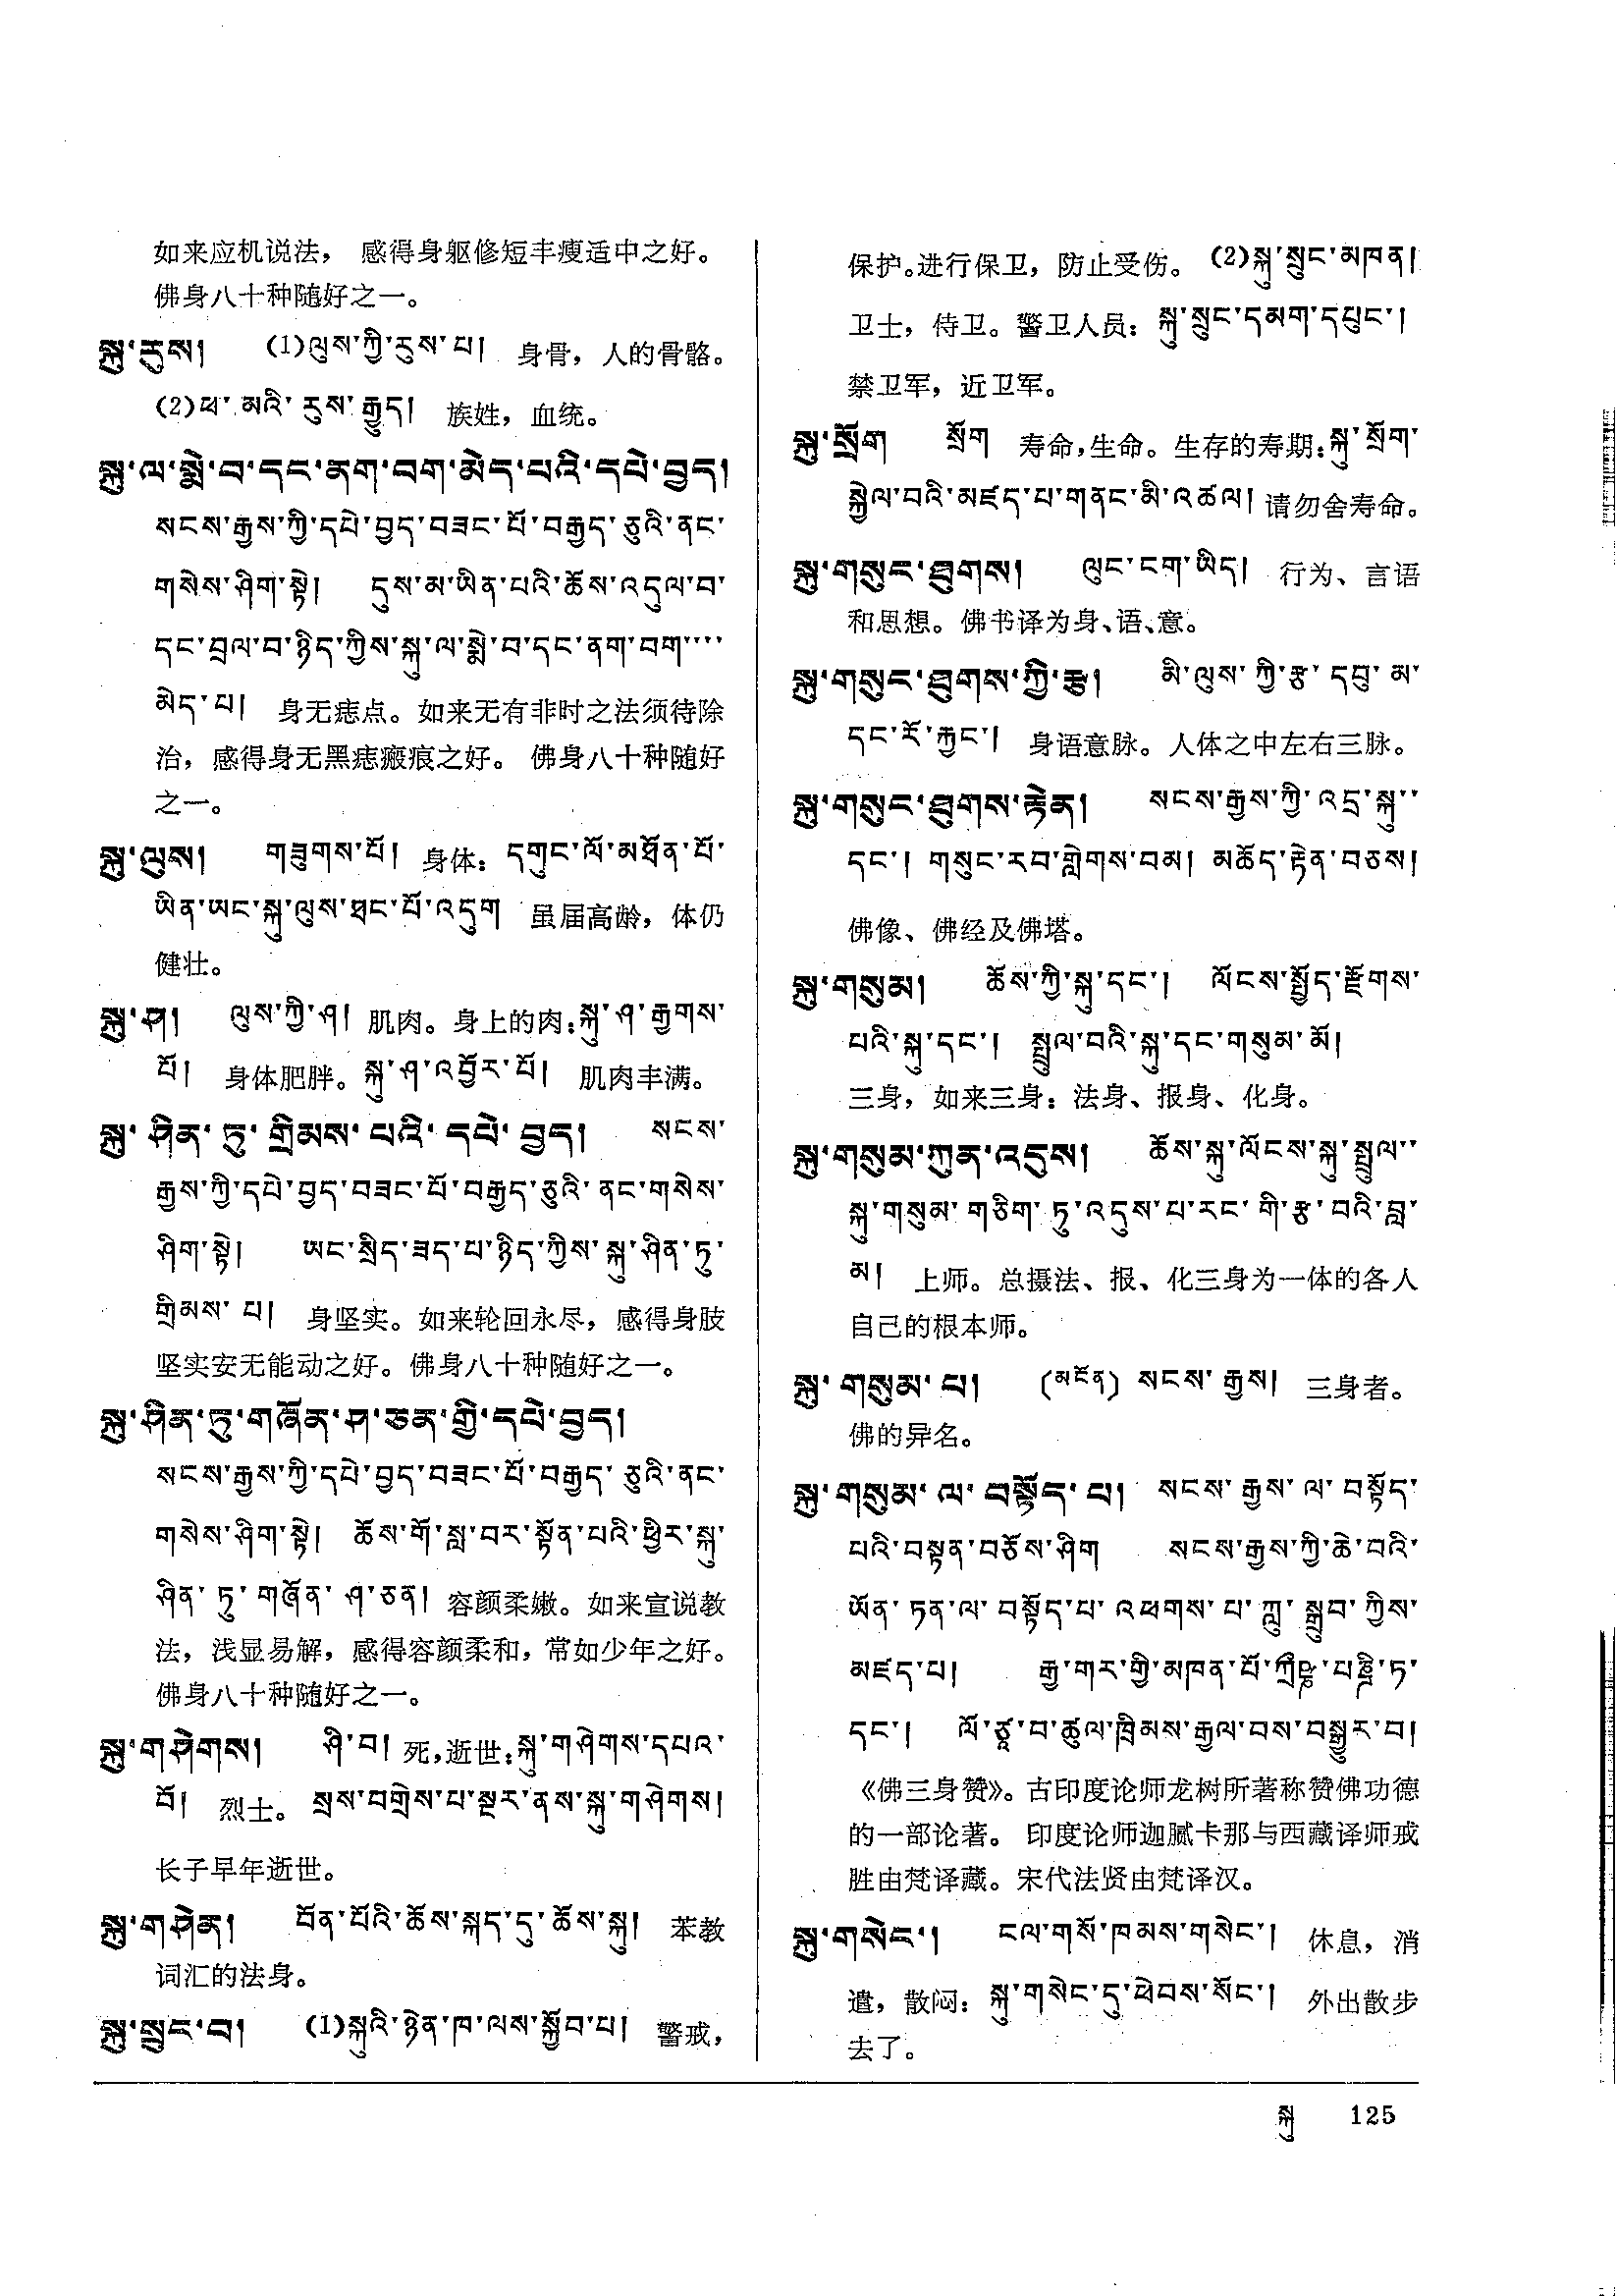 如来应机说法， 感得身躯修短丰瘦适中之好。
佛身八十种随好之一。
སྐུ་རུས།  (1)ལུས་ཀྱི་རུས་པ། 身骨，人的骨骼。
(2)ཕ་མའི་རུས་རྒྱུད། 族姓，血统。
སྐུ་ལ་སྨེ་བ་དང་ནག་བག་མེད་པའི་དཔེ་བྱད།
སངས་རྒྱས་ཀྱི་དཔེ་བྱད་བཟང་པོ་བརྒྱད་ཅུའི་ནང་
གསེས་ཤིག་སྟེ།  དུས་མ་ཡིན་པའི་ཆོས་འདུལ་བ་
དང་བྲལ་བ་ཉིད་ཀྱིས་སྐུ་ལ་སྨེ་བ་དང་ནག་བག་་་་
མེད་པ། 身无痣点。如来无有非时之法须待除
治，感得身无黑痣瘢痕之好。 佛身八十种随好
之一。
སྐུ་ལུས།  གཟུགས་པོ། 身体：དགུང་ལོ་མཐོན་པོ་
ཡིན་ཡང་སྐུ་ལུས་ཐང་པོ་འདུག 虽届高龄，体仍
健壮。
སྐུ་ཤ།  ལུས་ཀྱི་ཤ། 肌肉。身上的肉：སྐུ་ཤ་རྒྱགས་
པོ། 身体肥胖。སྐུ་ཤ་འབྱོར་པོ། 肌肉丰满。
སྐུ་ཤིན་ཏུ་གྲིམས་པའི་དཔེ་བྱད།  སངས་
རྒྱས་ཀྱི་དཔེ་བྱད་བཟང་པོ་བརྒྱད་ཅུའི་ནང་གསེས་
ཤིག་སྟེ།  ཡང་སྲིད་ཟད་པ་ཉིད་ཀྱིས་སྐུ་ཤིན་ཏུ་
གྲིམས་པ། 身坚实。如来轮回永尽，感得身肢
坚实安无能动之好。佛身八十种随好之一。
སྐུ་ཤིན་ཏུ་གཞོན་ཤ་ཅན་གྱི་དཔེ་བྱད།
སངས་རྒྱས་ཀྱི་དཔེ་བྱད་བཟང་པོ་བརྒྱད་ཅུའི་ནང་
གསེས་ཤིག་སྟེ།  ཆོས་གོ་སླ་བར་སྟོན་པའི་ཕྱིར་སྐུ་
ཤིན་ཏུ་གཞོན་ཤ་ཅན། 容颜柔嫩。如来宣说教
法，浅显易解，感得容颜柔和，常如少年之好。
佛身八十种随好之一。
སྐུ་གཤེགས།  ཤི་བ། 死，逝世：སྐུ་གཤེགས་དཔའ་
བོ། 烈士。 སྲས་བགྲེས་པ་སྔར་ནས་སྐུ་གཤེགས།
长子早年逝世。
སྐུ་གཤེན།  བོན་པོའི་ཆོས་སྐད་དུ་ཆོས་སྐུ། 苯教
词汇的法身。
སྐུ་སྲུང་བ།  (1)སྐུའི་ཉེན་ཁ་ལས་སྐྱོབ་པ། 警戒，
保护。进行保卫，防止受伤。 (2)སྐུ་སྲུང་མཁན།
卫士，侍卫。警卫人员：སྐུ་སྲུང་དམག་དཔུང་།
禁卫军，近卫军。
སྐུ་སྲོག  སྲོག 寿命，生命。生存的寿期：སྐུ་སྲོག་
སྐྱེལ་བའི་མཛད་པ་གནང་མི་འཚལ། 请勿舍寿命。
སྐུ་གསུང་ཐུགས།  ལུང་ངག་ཡིད། 行为、言语
和思想。佛书译为身、语、意。
སྐུ་གསུང་ཐུགས་ཀྱི་རྩ།  མི་ལུས་ཀྱི་རྩ་དབུ་མ་
དང་རོ་རྐྱང་། 身语意脉。人体之中左右三脉。
སྐུ་གསུང་ཐུགས་རྟེན།  སངས་རྒྱས་ཀྱི་འདྲ་སྐུ་་
དང་། གསུང་རབ་གླེགས་བམ། མཆོད་རྟེན་བཅས།
佛像、佛经及佛塔。
སྐུ་གསུམ།  ཆོས་ཀྱི་སྐུ་དང་།  ལོངས་སྤྱོད་རྫོགས་
པའི་སྐུ་དང་།  སྤྲུལ་བའི་སྐུ་དང་གསུམ་མོ།
三身，如来三身：法身、报身、化身。
སྐུ་གསུམ་ཀུན་འདུས།  ཆོས་སྐུ་ལོངས་སྐུ་སྤྲུལ་་
སྐུ་གསུམ་གཅིག་ཏུ་འདུས་པ་རང་གི་རྩ་བའི་བླ་
མ། 上师。总摄法、报、化三身为一体的各人
自己的根本师。
སྐུ་གསུམ་པ།  (མངོན) སངས་རྒྱས། 三身者。
佛的异名。
སྐུ་གསུམ་ལ་བསྟོད་པ། སངས་རྒྱས་ལ་བསྟོད་
པའི་བསྟན་བཅོས་ཤིག  སངས་རྒྱས་ཀྱི་ཆེ་བའི་
ཡོན་ཏན་ལ་བསྟོད་པ་འཕགས་པ་ཀླུ་སྒྲུབ་ཀྱིས་
མཛད་པ།  རྒྱ་གར་གྱི་མཁན་པོ་ཀྲྀཥྞ་པཎྜི་ཏ་
དང་།  ལོ་ཙཱ་བ་ཚུལ་ཁྲིམས་རྒྱལ་བས་བསྒྱུར་བ།
《佛三身赞》。古印度论师龙树所著称赞佛功德
的一部论著。 印度论师迦腻卡那与西藏译师戒
胜由梵译藏。宋代法贤由梵译汉。
སྐུ་གསེང་།  ངལ་གསོ་ཁམས་གསེང་། 休息，消
遣，散闷：སྐུ་གསེང་དུ་ཕེབས་སོང་། 外出散步
去了。
སྐུ 125